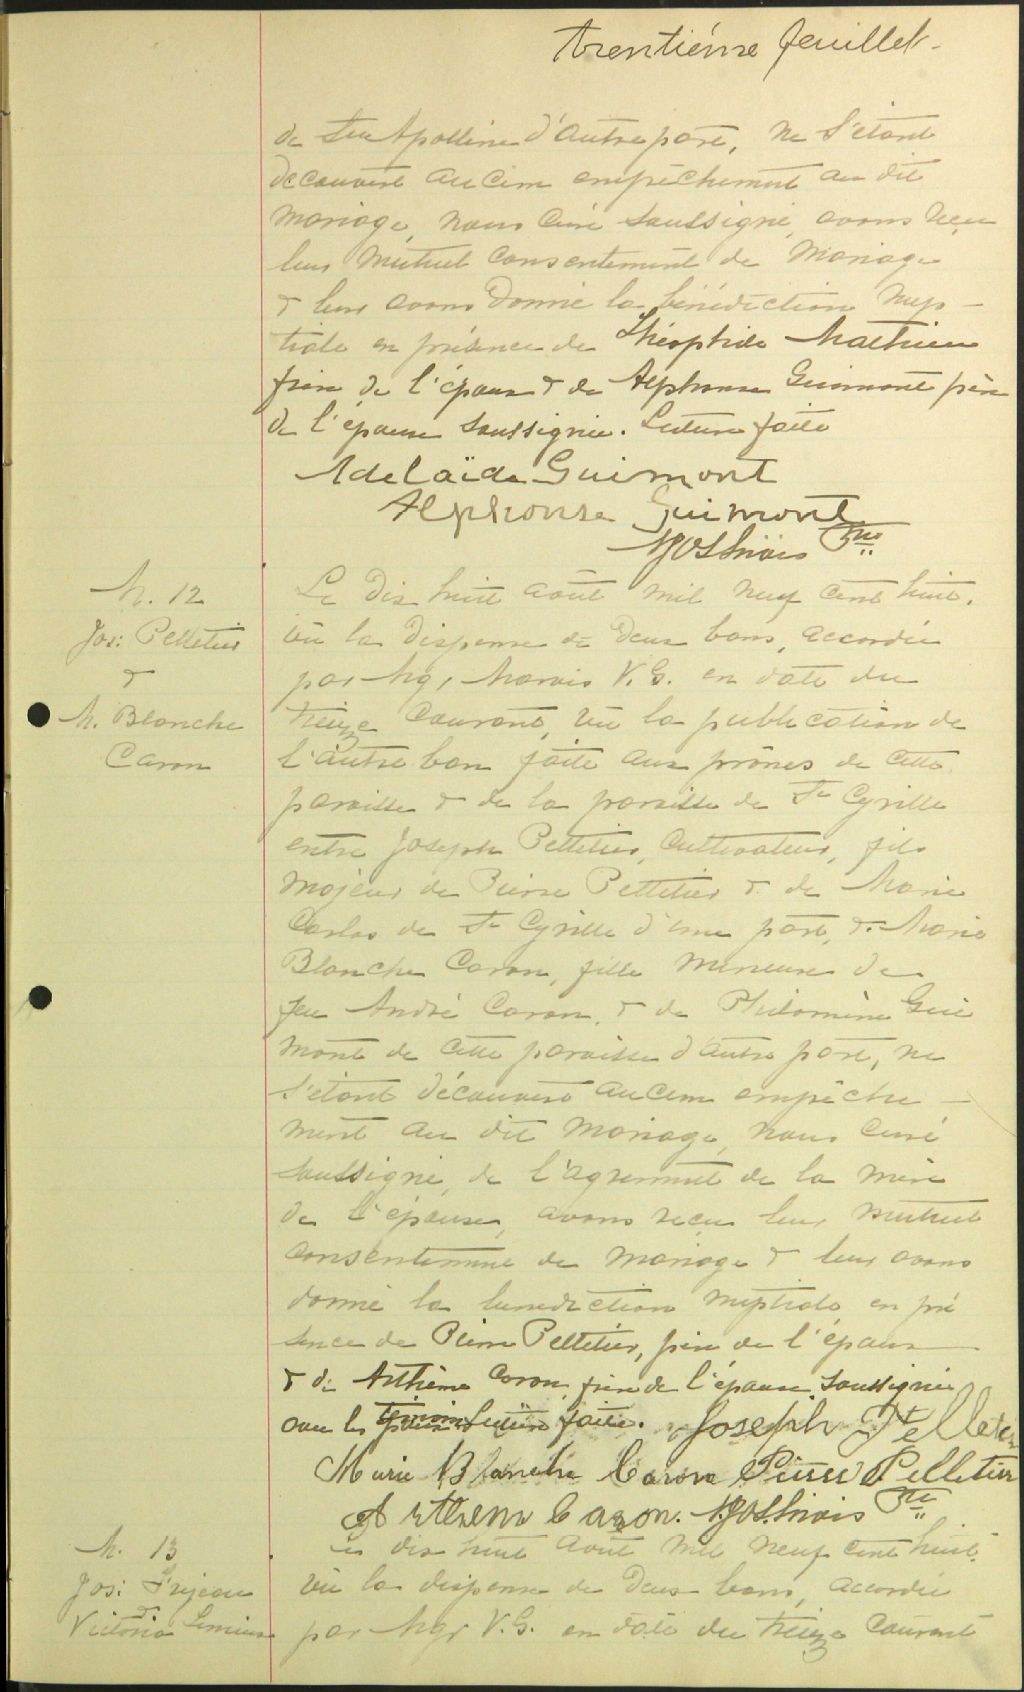 trentième feuillet.
de Ste Apolline d'autre part, ne s'étant
découvert aucun empêchement au dit
mariage, nous curé soussigné, avons reçu
leur mutuel consentement de mariage
& leur avons donné la bénédiction nup-
tiale en présence de Théophile Mathieu
frère de l'époux & de Alphonse Guimont père
de l'épouse soussignée. Lecture faite
Adelaïde Guimont
Alphonse Guimont
Ptre
M. 12
Jos: Pelletier
&
M. Blanche
Caron
Le dix huit août mil neuf cent huit,
vu la dispense de deux bans, accordée
par Mgr Marois V.G. en date du
treize courant, vu la publication de
l'autre ban faite aux prônes de cette
paroisse & de la paroisse de St Cyrille
entre Joseph Pelletier, cultivateur, fils
majeur de Pierre Pelletier & de Marie
de St Cyrille d'une part, & Marie
Blanche Caron, fille mineure de
feu André Caron, & de Philomène Gui
mont de cette paroisse d'autre part, ne
s'étant découvert aucun empêche-
ment au dit mariage, nous curé
soussigné, de l'agrément de la mère
de l'épouse, avons reçu leur mutuel
consentement de mariage & leur avons
donné la bénédiction nuptiale en pré
sence de Pierre Pelletier, père de l'époux
& de Arthème Caron frère de l'épouse soussignés
avec les Lecture faite. Joseph Pelletier
Marie Blanche Caron Pierre Pelletier
Arthem Caron. Ptre
M. 13
Jos:
&
Victoria Lemieux
Le dix huit août mil neuf cent huit,
vu la dispense de deux bans, accordée
par Mgr V.G. en date du treize courant